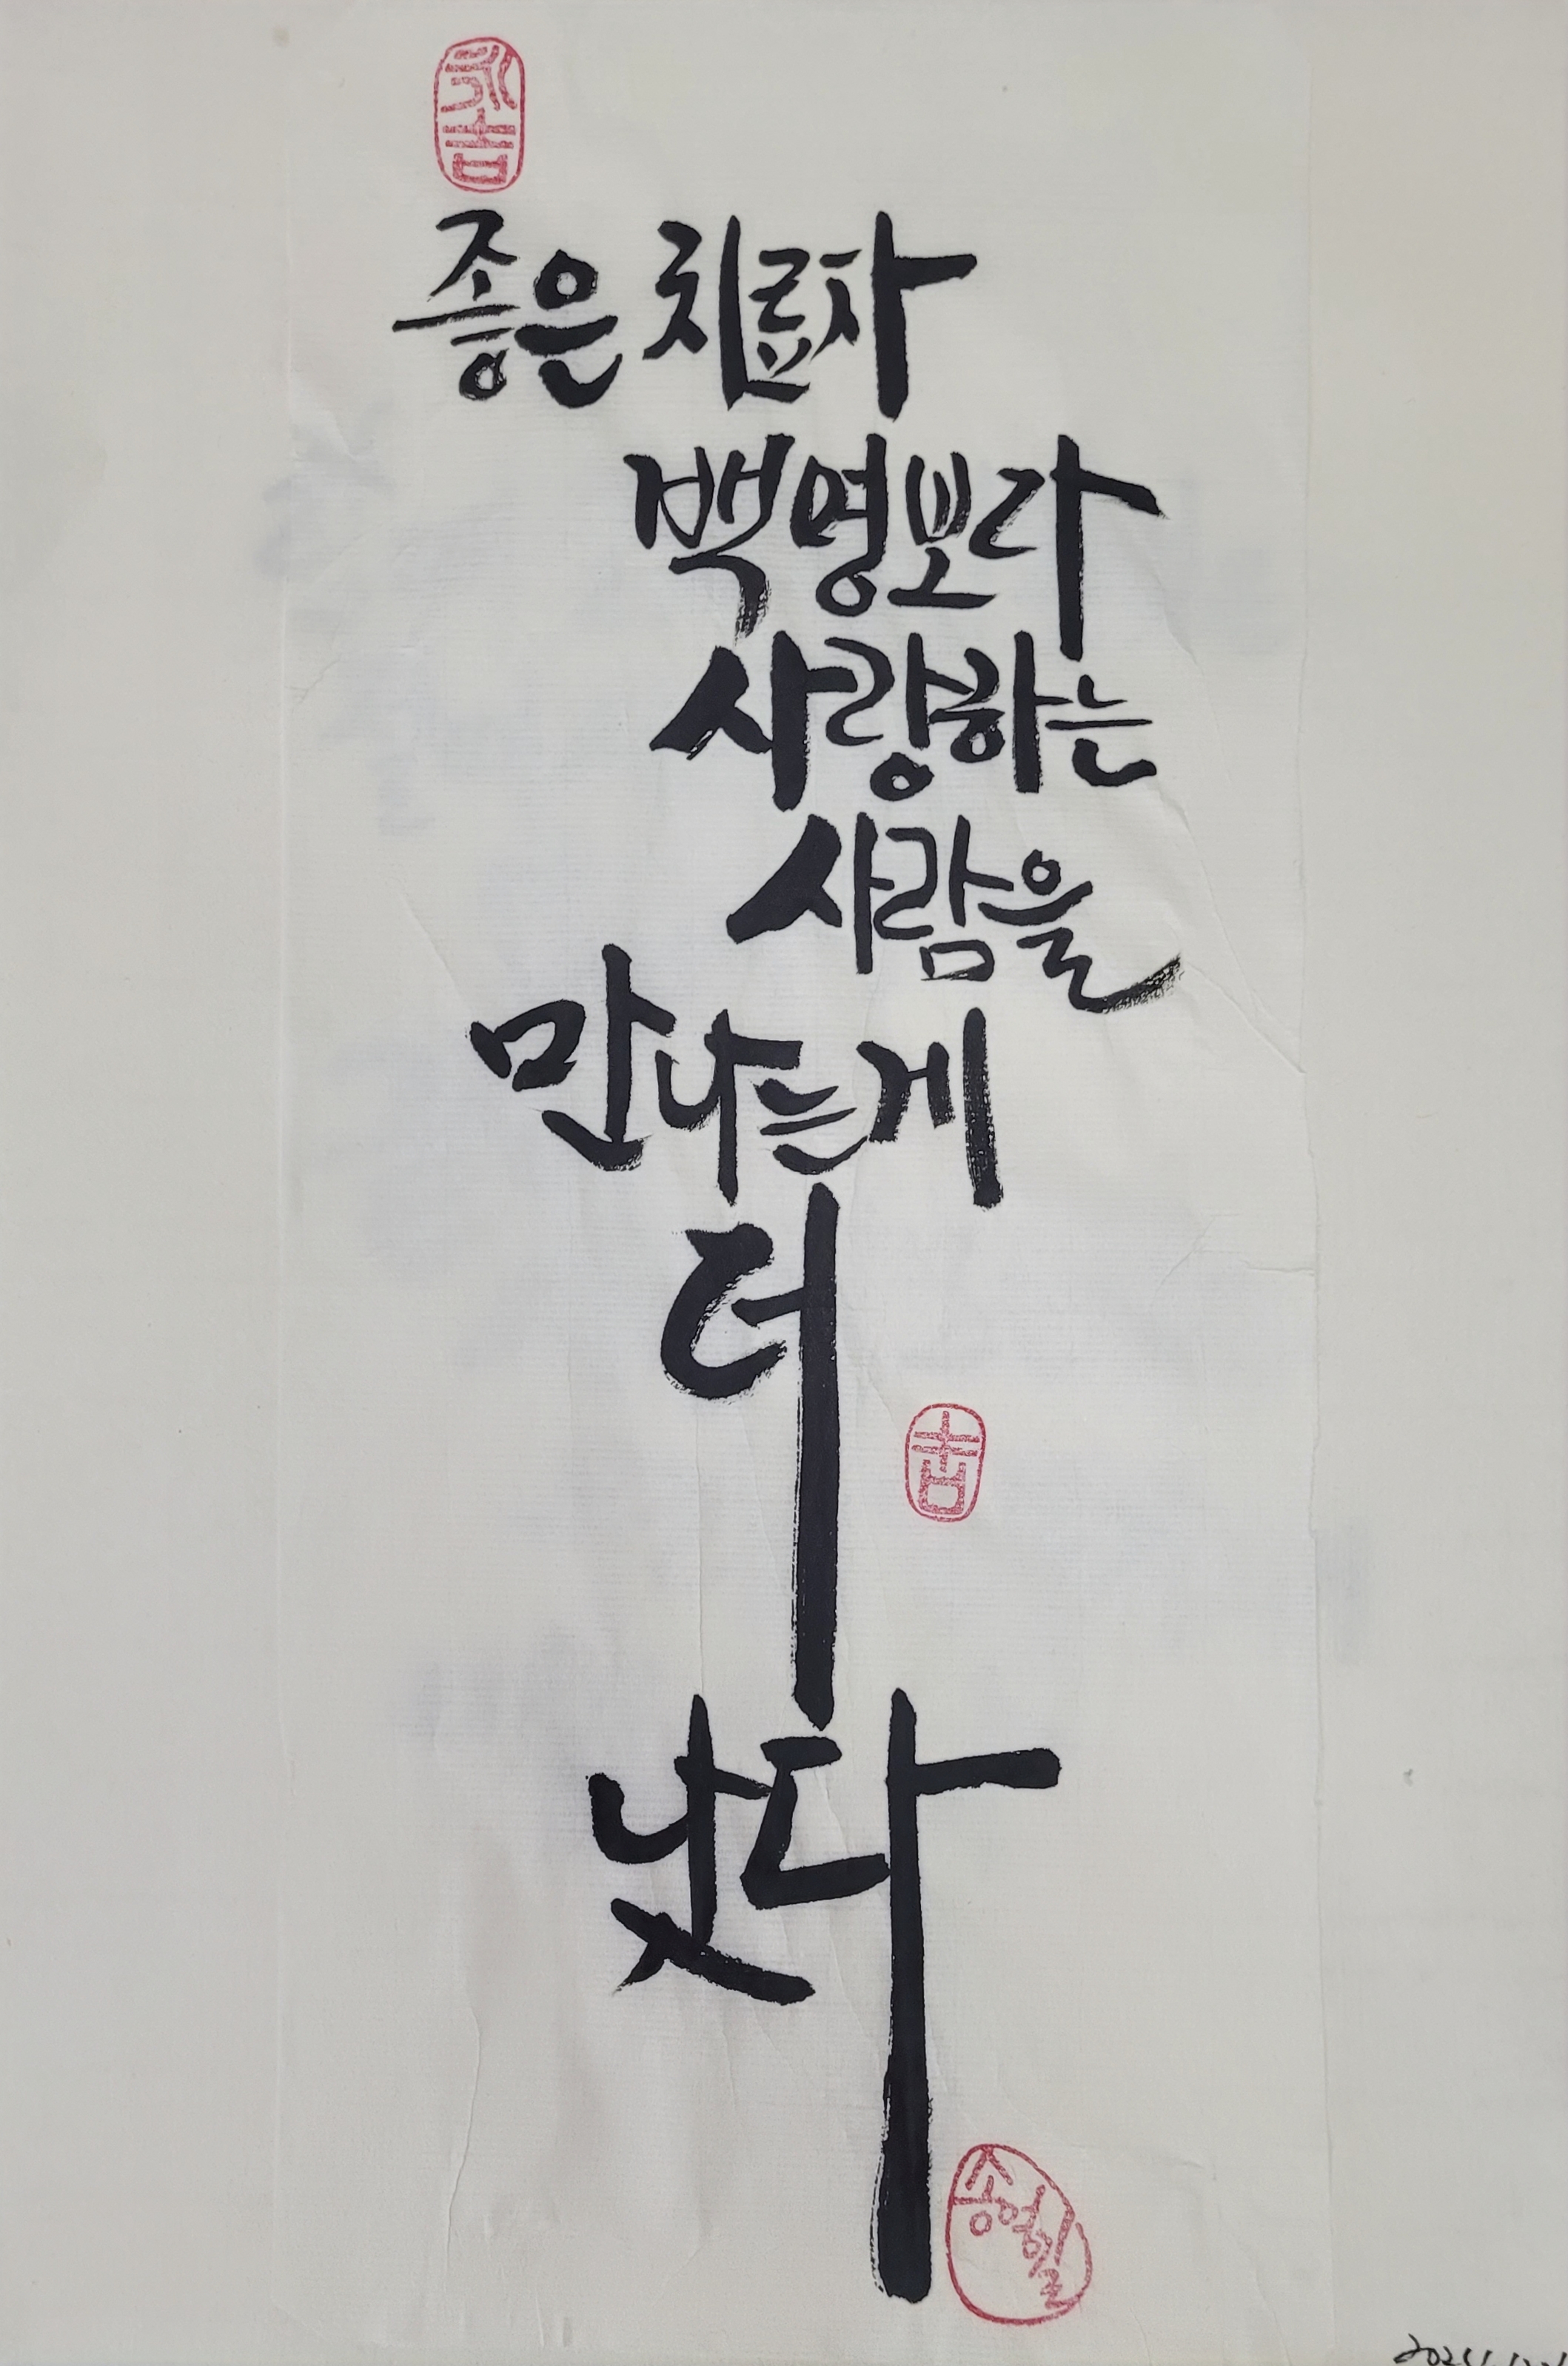 永吉
좋은 치료자
백명보다
사랑하는
사람을
만나는게
더
吉
낫다
송영일